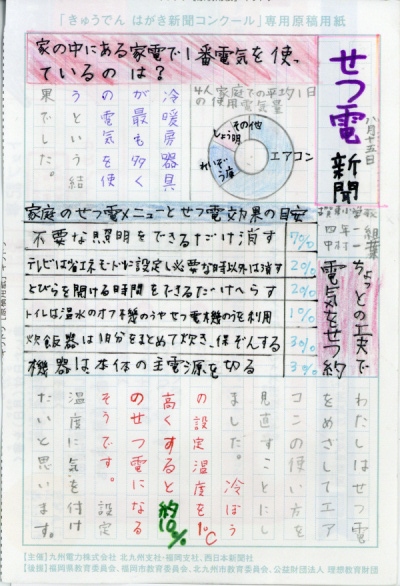 「きゅうでん はがき新聞コンクール」専用原稿用紙
せつ電新聞
八月十五日
四年
ちょっとの工夫で
電気をせつ約
家の中にある家電で1番電気を使っ
ているのは?
4人家庭での平均1日
の使用電気量
エアコン
れいぞう庫
しょう明
その他
冷暖房器具
が最も多く
の電気を使
うという結
果でした。
家庭のせつ電メニューとせつ電効果の目安
不要な照明をできるだけ消す
テレビは省エネモードに設定し必要な時以外は消す 2%
とびらを開ける時間をできるだけへらす 2%
トイレは温水のオフ機のうやせつ電機のうを利用 1%
炊飯器は1日分をまとめて炊き、保ぞんする 3%
機器は、本体の主電源を切る
わたしはせつ電
をめざしてエア
コンの使い方を
見直すことにし
ました。冷ぼう
の設定温度を1℃
高くすると約10%
のせつ電になる
そうです。設定
温度に気を付け
たいと思います。
【主催】九州電力株式会社 北九州支社・福岡支社、西日本新聞社
【後援】福岡県教育委員会、福岡市教育委員会、北九州市教育委員会、公益財団法人 理想教育財団